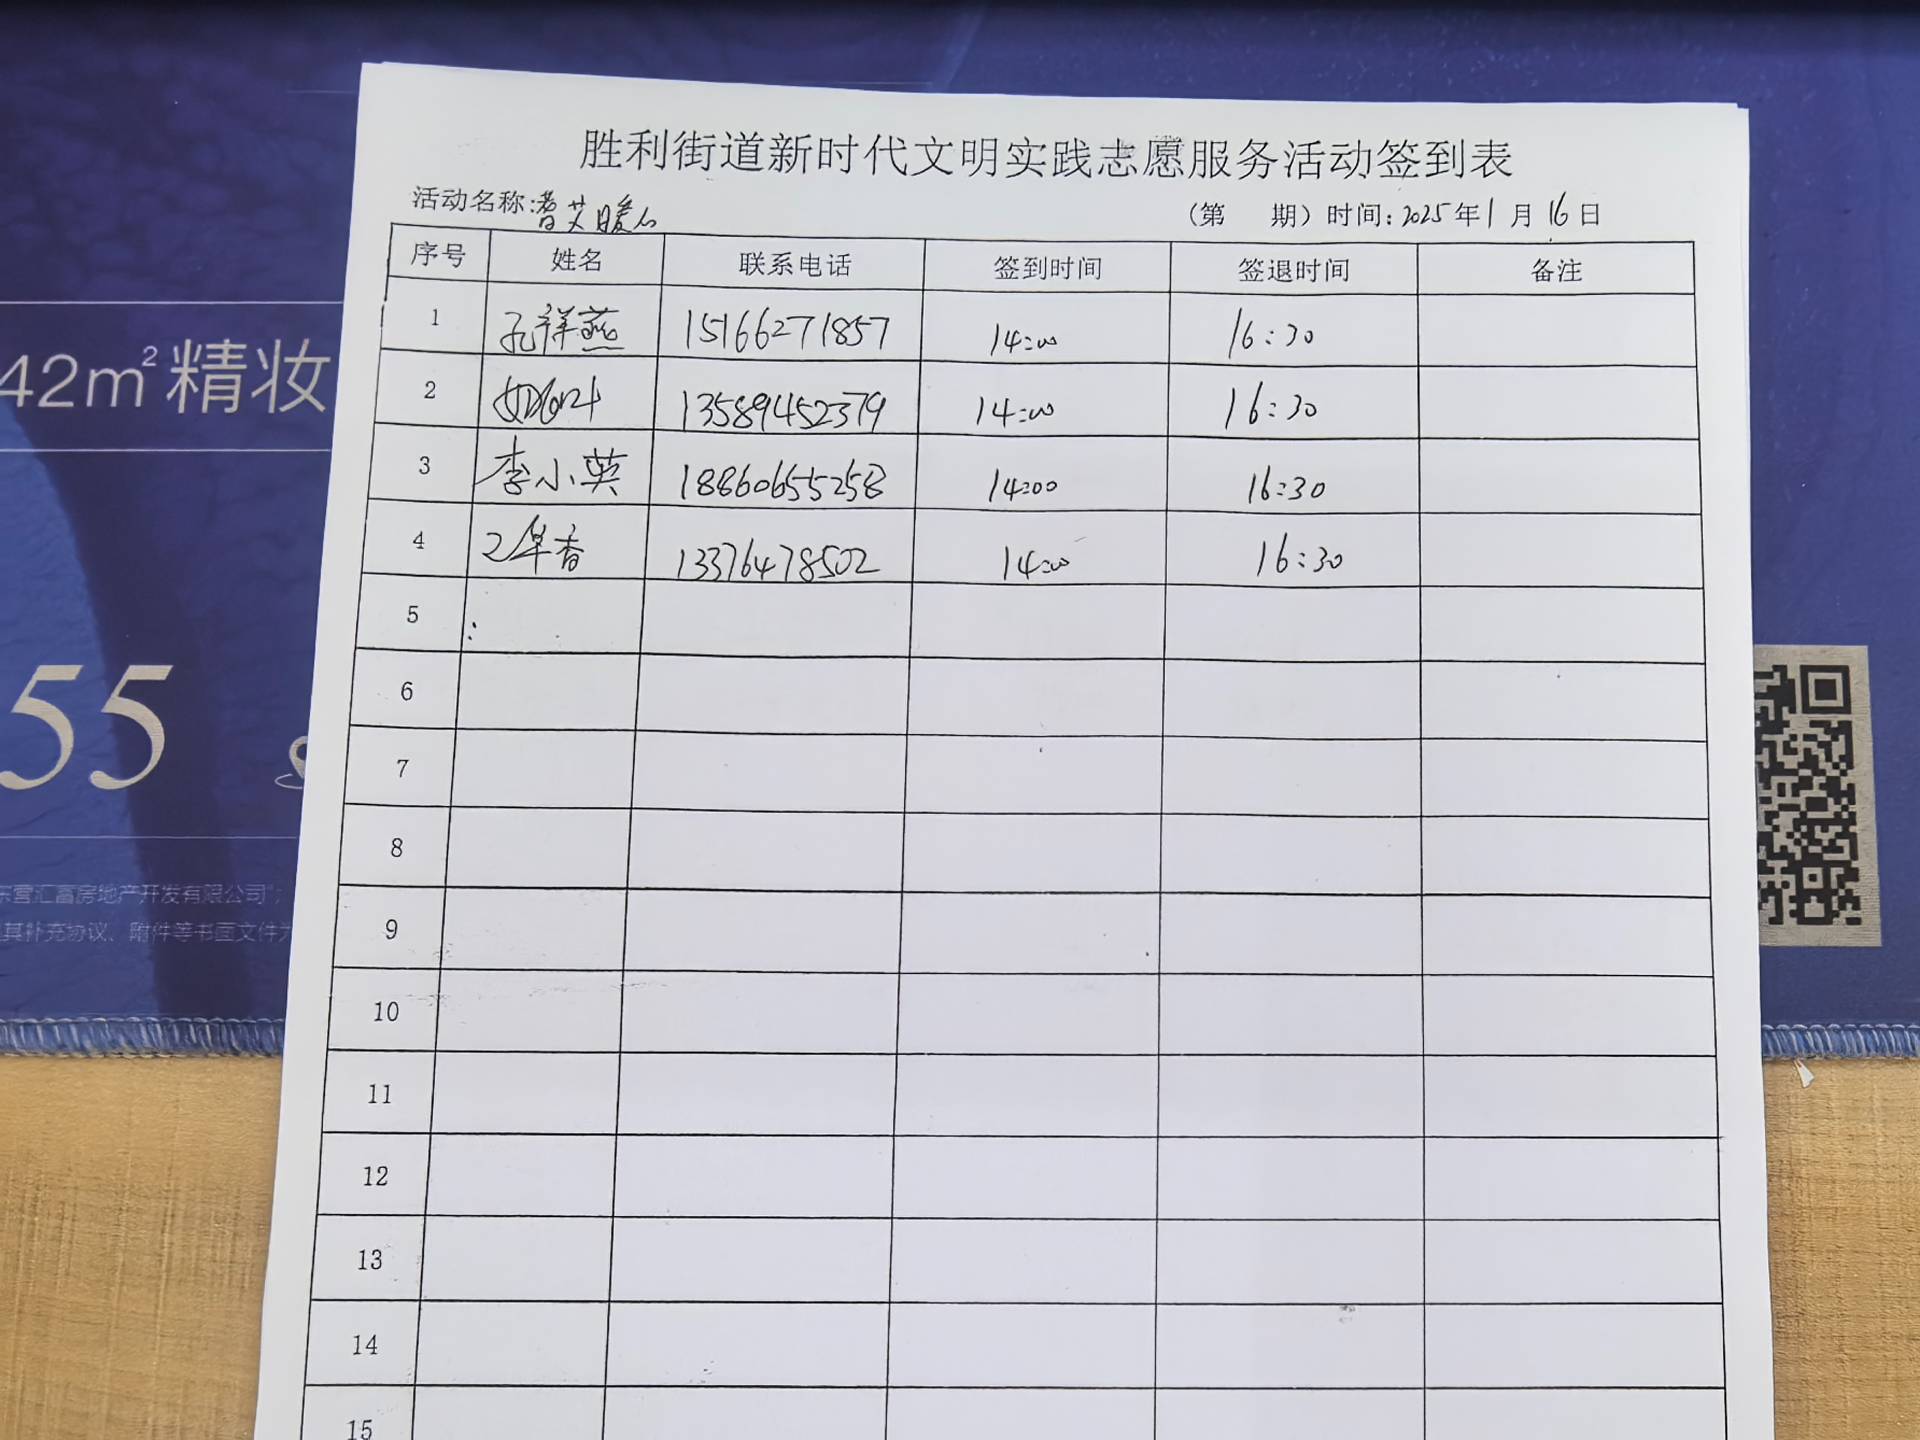 胜利街道新时代文明实践志愿服务活动签到表
活动名称: 艾暖心 (第 期) 时间: 2025年1月16日
序号 姓名 联系电话 签到时间 签退时间 备注
1 孔祥燕 15166271857 14:00 16:30
2 13589452379 14:00 16:30
3 李小英 18860655258 14:00 16:30
4 13376478502 14:00 16:30
5
6
7
8
9
10
11
12
13
14
15
42m²精妆
55
东营汇富房地产开发有限公司"；
其补充协议、附件等书面文件为